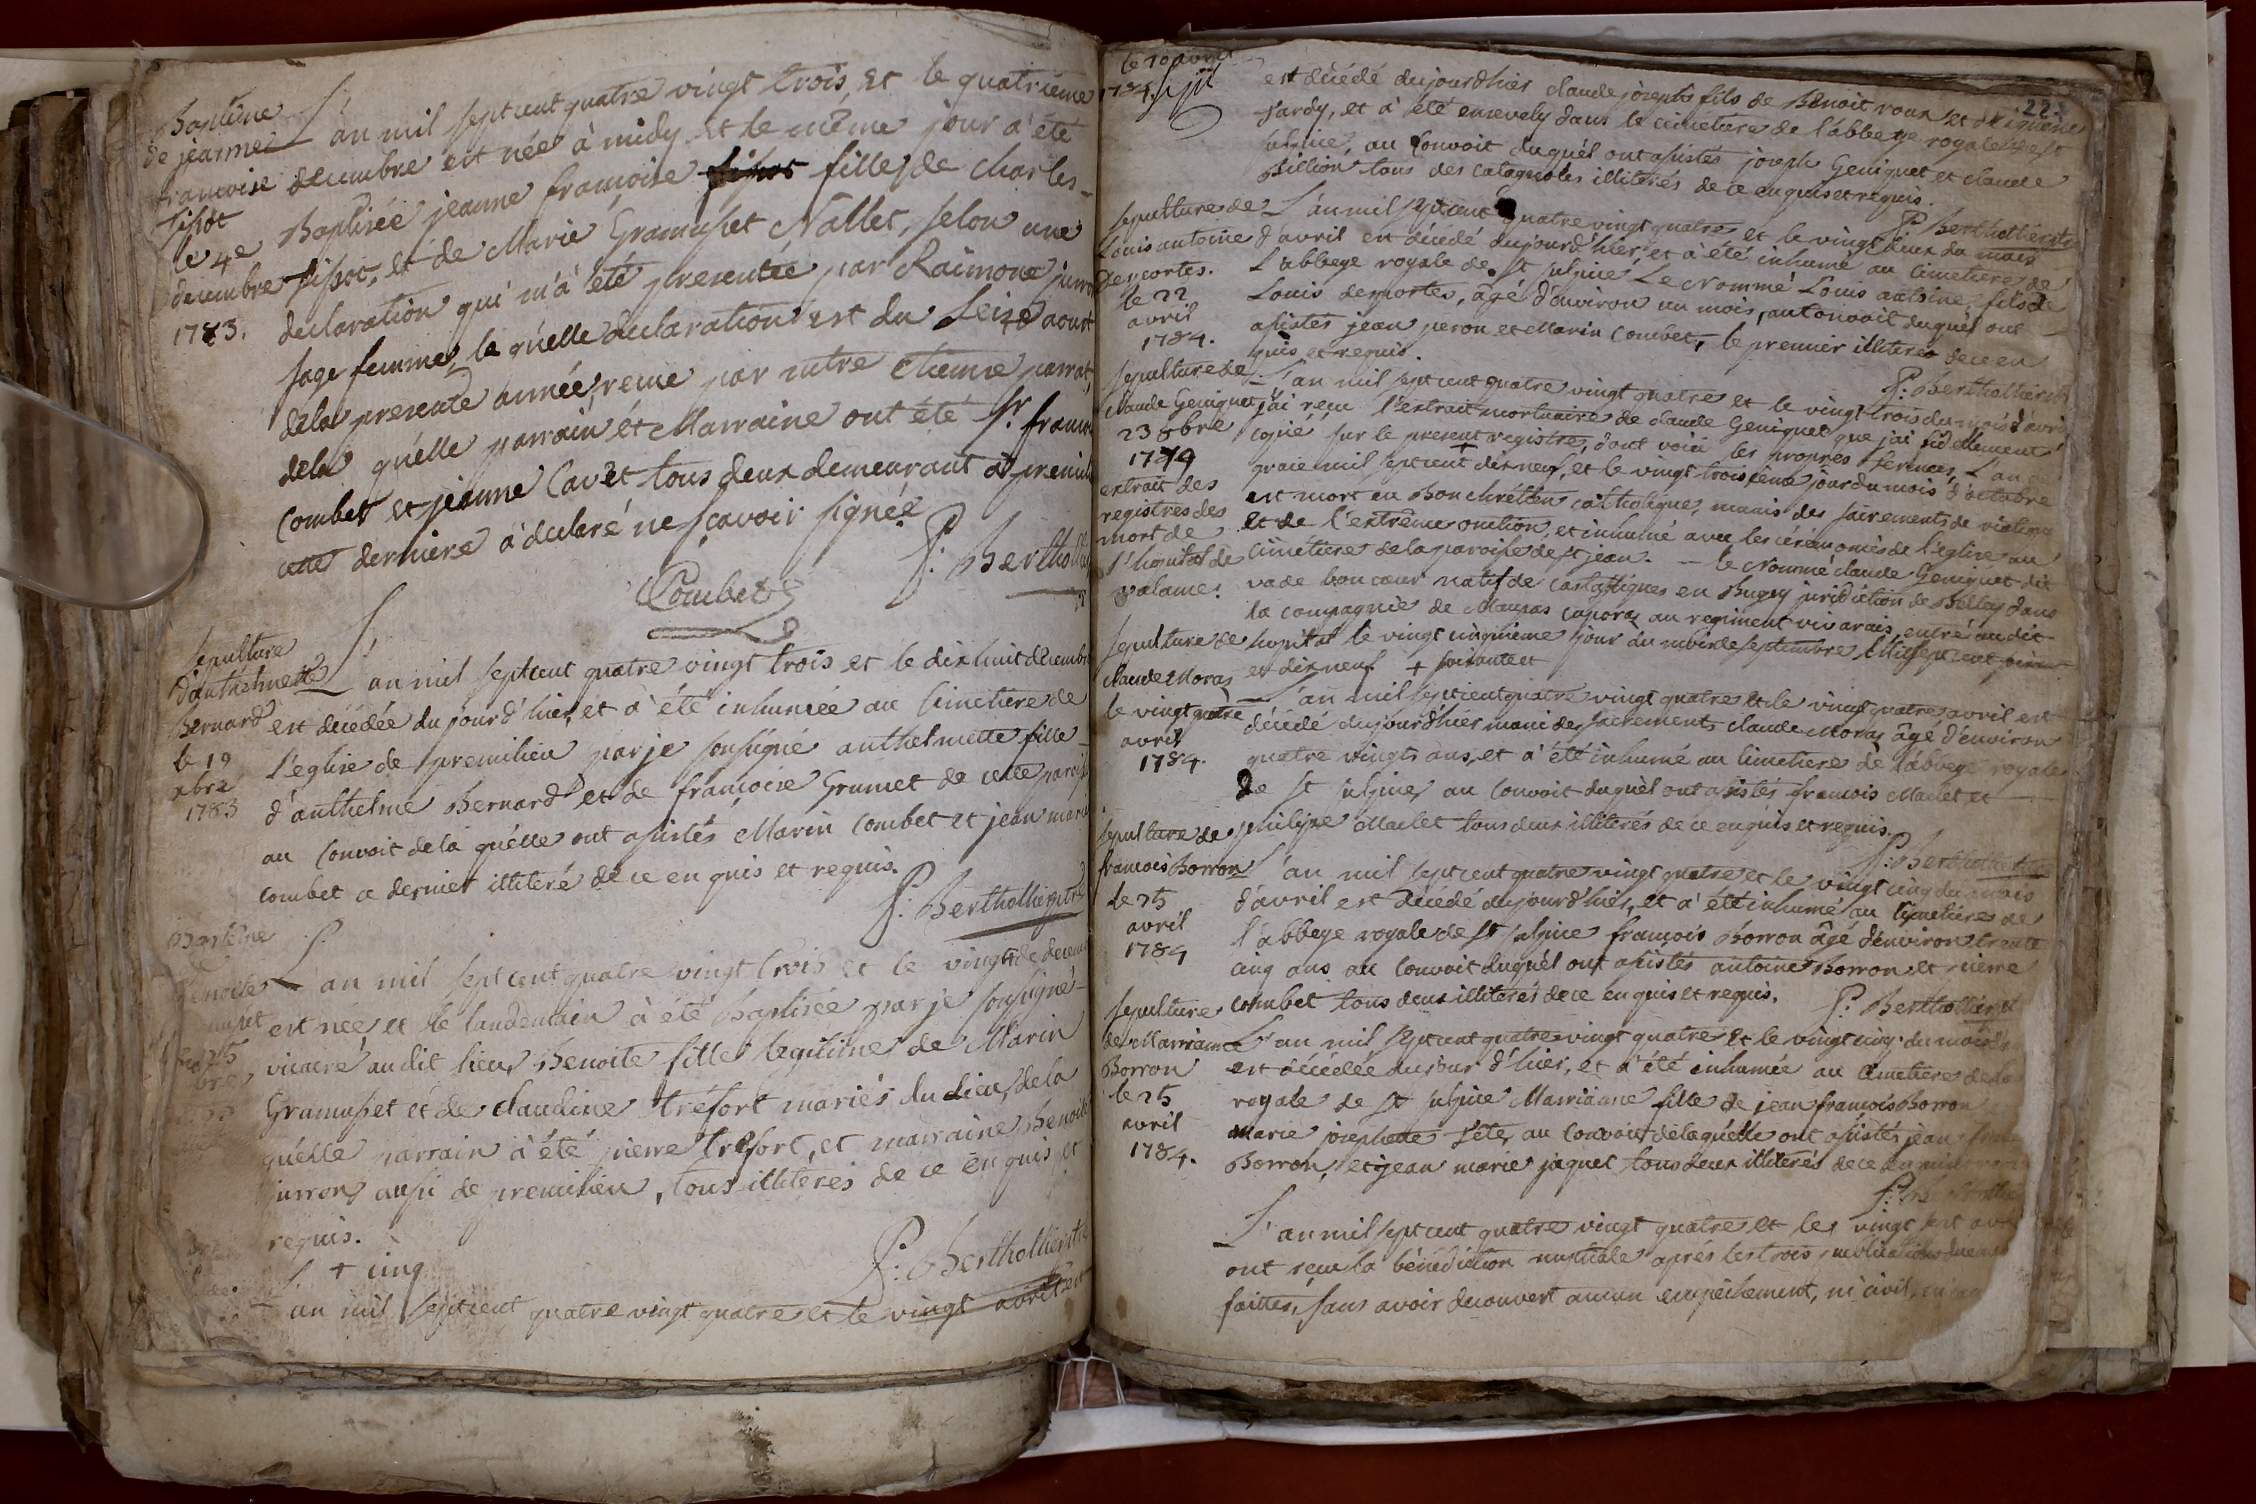 Baptême
de jeanne
francoise
sipot
le 4e
decembre
1783.
L'an mil sept cent quatre vingt trois, et le quatrieme
decembre est née à midy et le même jour a été
Baptisée jeanne françoise fille de charles
sipot, et de Marie Gramuset Nallet, selon une
declaration qui m'a été presentée par Raimone jurron
sage femme, la quelle declaration est du seize aoust
dela presente année, recue par mtre Etienne parrat,
dela quelle parrain et Marraine ont été Sr. francois
Combet et jeanne Cavet tous deux demeurant à premilieu
cette derniere a declaré ne sçavoir signée
P: Berthollier
Combet
sepulture
d'anthelmette
Bernard
le 19
xbre
1783
L'an mil sept cent quatre vingt trois et le dix huit decembre
est décédée du jour d'hier, et à été inhumée au Cimetiere de
l'eglise de premilieu par je sousigné anthelmette fille
d'anthelme Bernard et de françoise Grumet de cette paroisse
au Convoit dela quélle ont asistés Marin Combet et jean marie
combet ce dernier illiteré de ce enquis et requis.
P: Berthollier ptre
Baptême
Benoite
L'an mil sept cent quatre vingt trois et le vingt de decembre
est née et le landemain à été Baptisée par je sousigné
vicaire au dit lieu, Benoite fille legitime de Marin
Gramuset et de claudine tréfort mariés du dieu, de la
quélle parrain à été pierre trefort, et marraine Benoite
jurron, aussi de premilieu, tous illiterés de ce enquis et
requis.
+ cinq
P: Berthollier ptre
L'an mil sept cent quatre vingt quatre et le vingt avril est
le 20 avril
1784
22.
est décédé dujourdhier claude joseph fils de Benoit roux et
jardy, et à été ensevely dans le cimetiere de l'abbeye royale de st
sulpice, au Convoit duquél ont asistés joseph Geniquet et claude
Billion tous des catagnoles illiterés de ce enquis et requis.
P: Berthollier ptre
sepulture de
Louis antoine
Desportes.
le 22
avril
1784.
L'an mil sept cent quatre vingt quatre et le vingt deux du mois
d'avril est décédé dujourd'hier, et à été inhumé au Cimetiere de
L'abbeye royale de st sulpice Le nommé Louis antoine, fils de
Louis desportes, âgé d'environ un mois, au Convoit duquél ont
asistés jean peron et Marin Combet, le premier illiteré de ce en
quis et requis.
P: Berthollier ptre
sepulture de
claude Geniquet
23 8bre
1779
extrait des
registres des
mort de
l'hopital de
valance.
L'an mil sept cent quatre vingt quatre et le vingt trois du mois d'avril
j'ai reçu l'extrait mortuaire de claude Geniquet que j'ai fidellement
copié sur le present registre, dont voici les propres termes, L'an
graie mil sept cent + dix neuf, et le vingt troisieme jour du mois d'octobre
est mort en Bon chrétien catholique, munis des sacrements de viatique
et de l'extrême onction, et inhumé avec les cérémonies de l'eglise au
Cimétiere de la paroisse de st jean. — le Nommé claude Geniquet dit
va de bon coeur natif de Contagniques en Bugey juridiction de Belley dans
la compagnie de Maupas caporal au regiment vivarais, entré au dit
hopital le vingt cinquieme jour du mois de septembre Mil sept cent
et dix neuf + soixante et
sepulture de
claude Moras
le vingt quatre
avril
1784.
L'an mil sept cent quatre vingt quatre et le vingt quatre avril est
décédé dujourd'hier muni des sacrements claude Moras âgé d'environ
quatre vingts ans, et à été inhumé au Cimetiere de l'abbeye royale
De st sulpice, au Convoit duquél ont asistés francois Maclet et
philipe Maclet tous deux illiterés de ce enquis et requis.
P: Berthollier ptre
sepulture de
francois Borron
le 25
avril
1784
L'an mil sept cent quatre vingt quatre et le vingt cinq du mois
d'avril est décédé dujourd'hier, et à été inhumé au Cimetiere de
l'abbeye royale de st sulpice françois Borron âgé d'environ trente
cinq ans au Convoit duquél ont asistés antoine Borron et pierre
combet tous deux illiterés de ce enquis et requis.
P: Berthollier ptre
sepulture
de Marrianne
Borron
le 25
avril
1784.
L'an mil sept cent quatre vingt quatre et le vingt cinq du mois
est décédée du jour d'hier, et à été inhumée au Cimetiere de
royale de st sulpice Marrianne fille de jean françois Borron
marie josephette tété, au Convoit de laquélle ont asistés jean
Borron, et jean marie jaquet tous deux illiterés de ce enquis
P: Berthollier
L'an mil sept cent quatre vingt quatre et le vingt sept avril
ont reçu la bénédiction nuptiale après les trois publications
faittes, sans avoir decouvert aucun empeichement, ni civil,